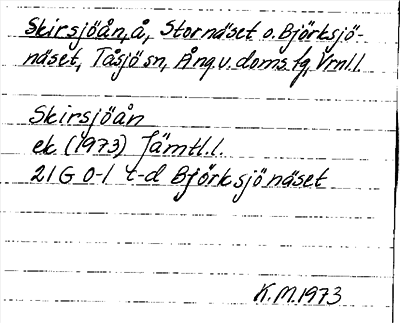 Skirsjöån, å, Stornäset o. Björksjö-
näset, Tåsjö sn, Ång.v. doms.fg, Vrnl.l.
Skirsjöån
ek. (1973) Jämtl.l.
21G 0-1 c-d Björksjönäset
K.M. 1973